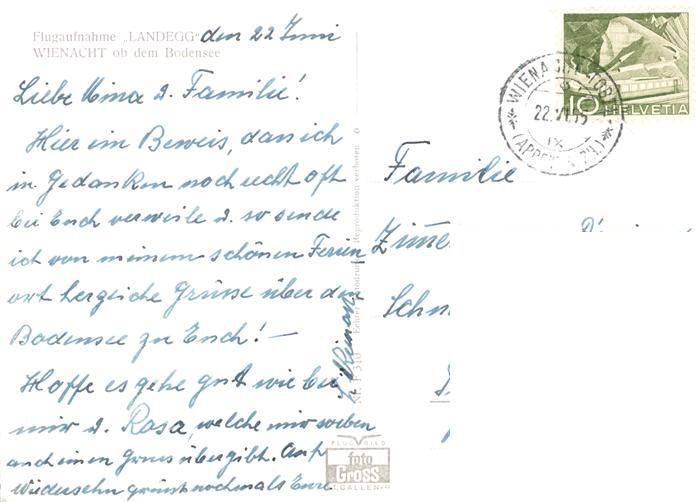 Flugaufnahme „LANDEGG"
WIENACHT ob dem Bodensee
den 22 Juni
Liebe Mina u. Familie!
Hier im Beweis, dass ich
in Gedanken noch recht oft
bei Euch verweile u. so sende
ich von meinem schönen Ferien
ort herzliche Grüsse über den
Bodensee zu Euch! —
Hoffe es gehe gut wie bei
mir u. Rosa, welche mir soeben
auch einen Gruss übergibt. Auf
Wiedersehn grüsst nochmals Eure
Echter Reproduktion verboten
Nr. F 310
FLUGBILD
foto
Gross
ST. GALLEN
10 HELVETIA
WIENACHT-TOBEL
22.VI.
IX
(APPENZELL)
Familie